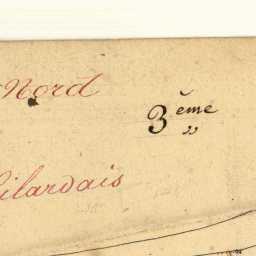 Nord
3ème
ilardais